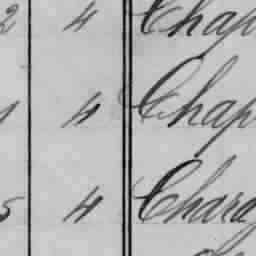 2 4 Chap
1 4 Chap
5 4 Chara